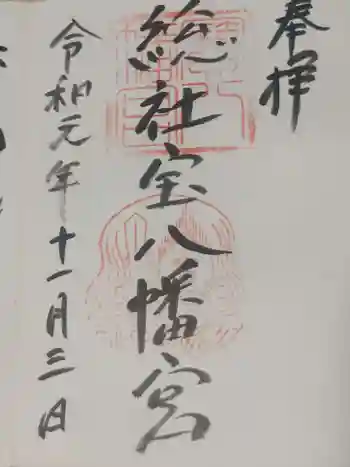 奉拝
總社宝八幡宮
令和元年十一月三日